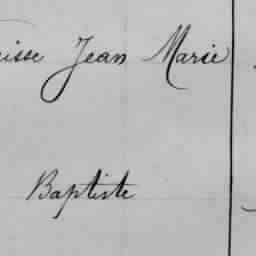 uisse Jean Marie
Baptiste